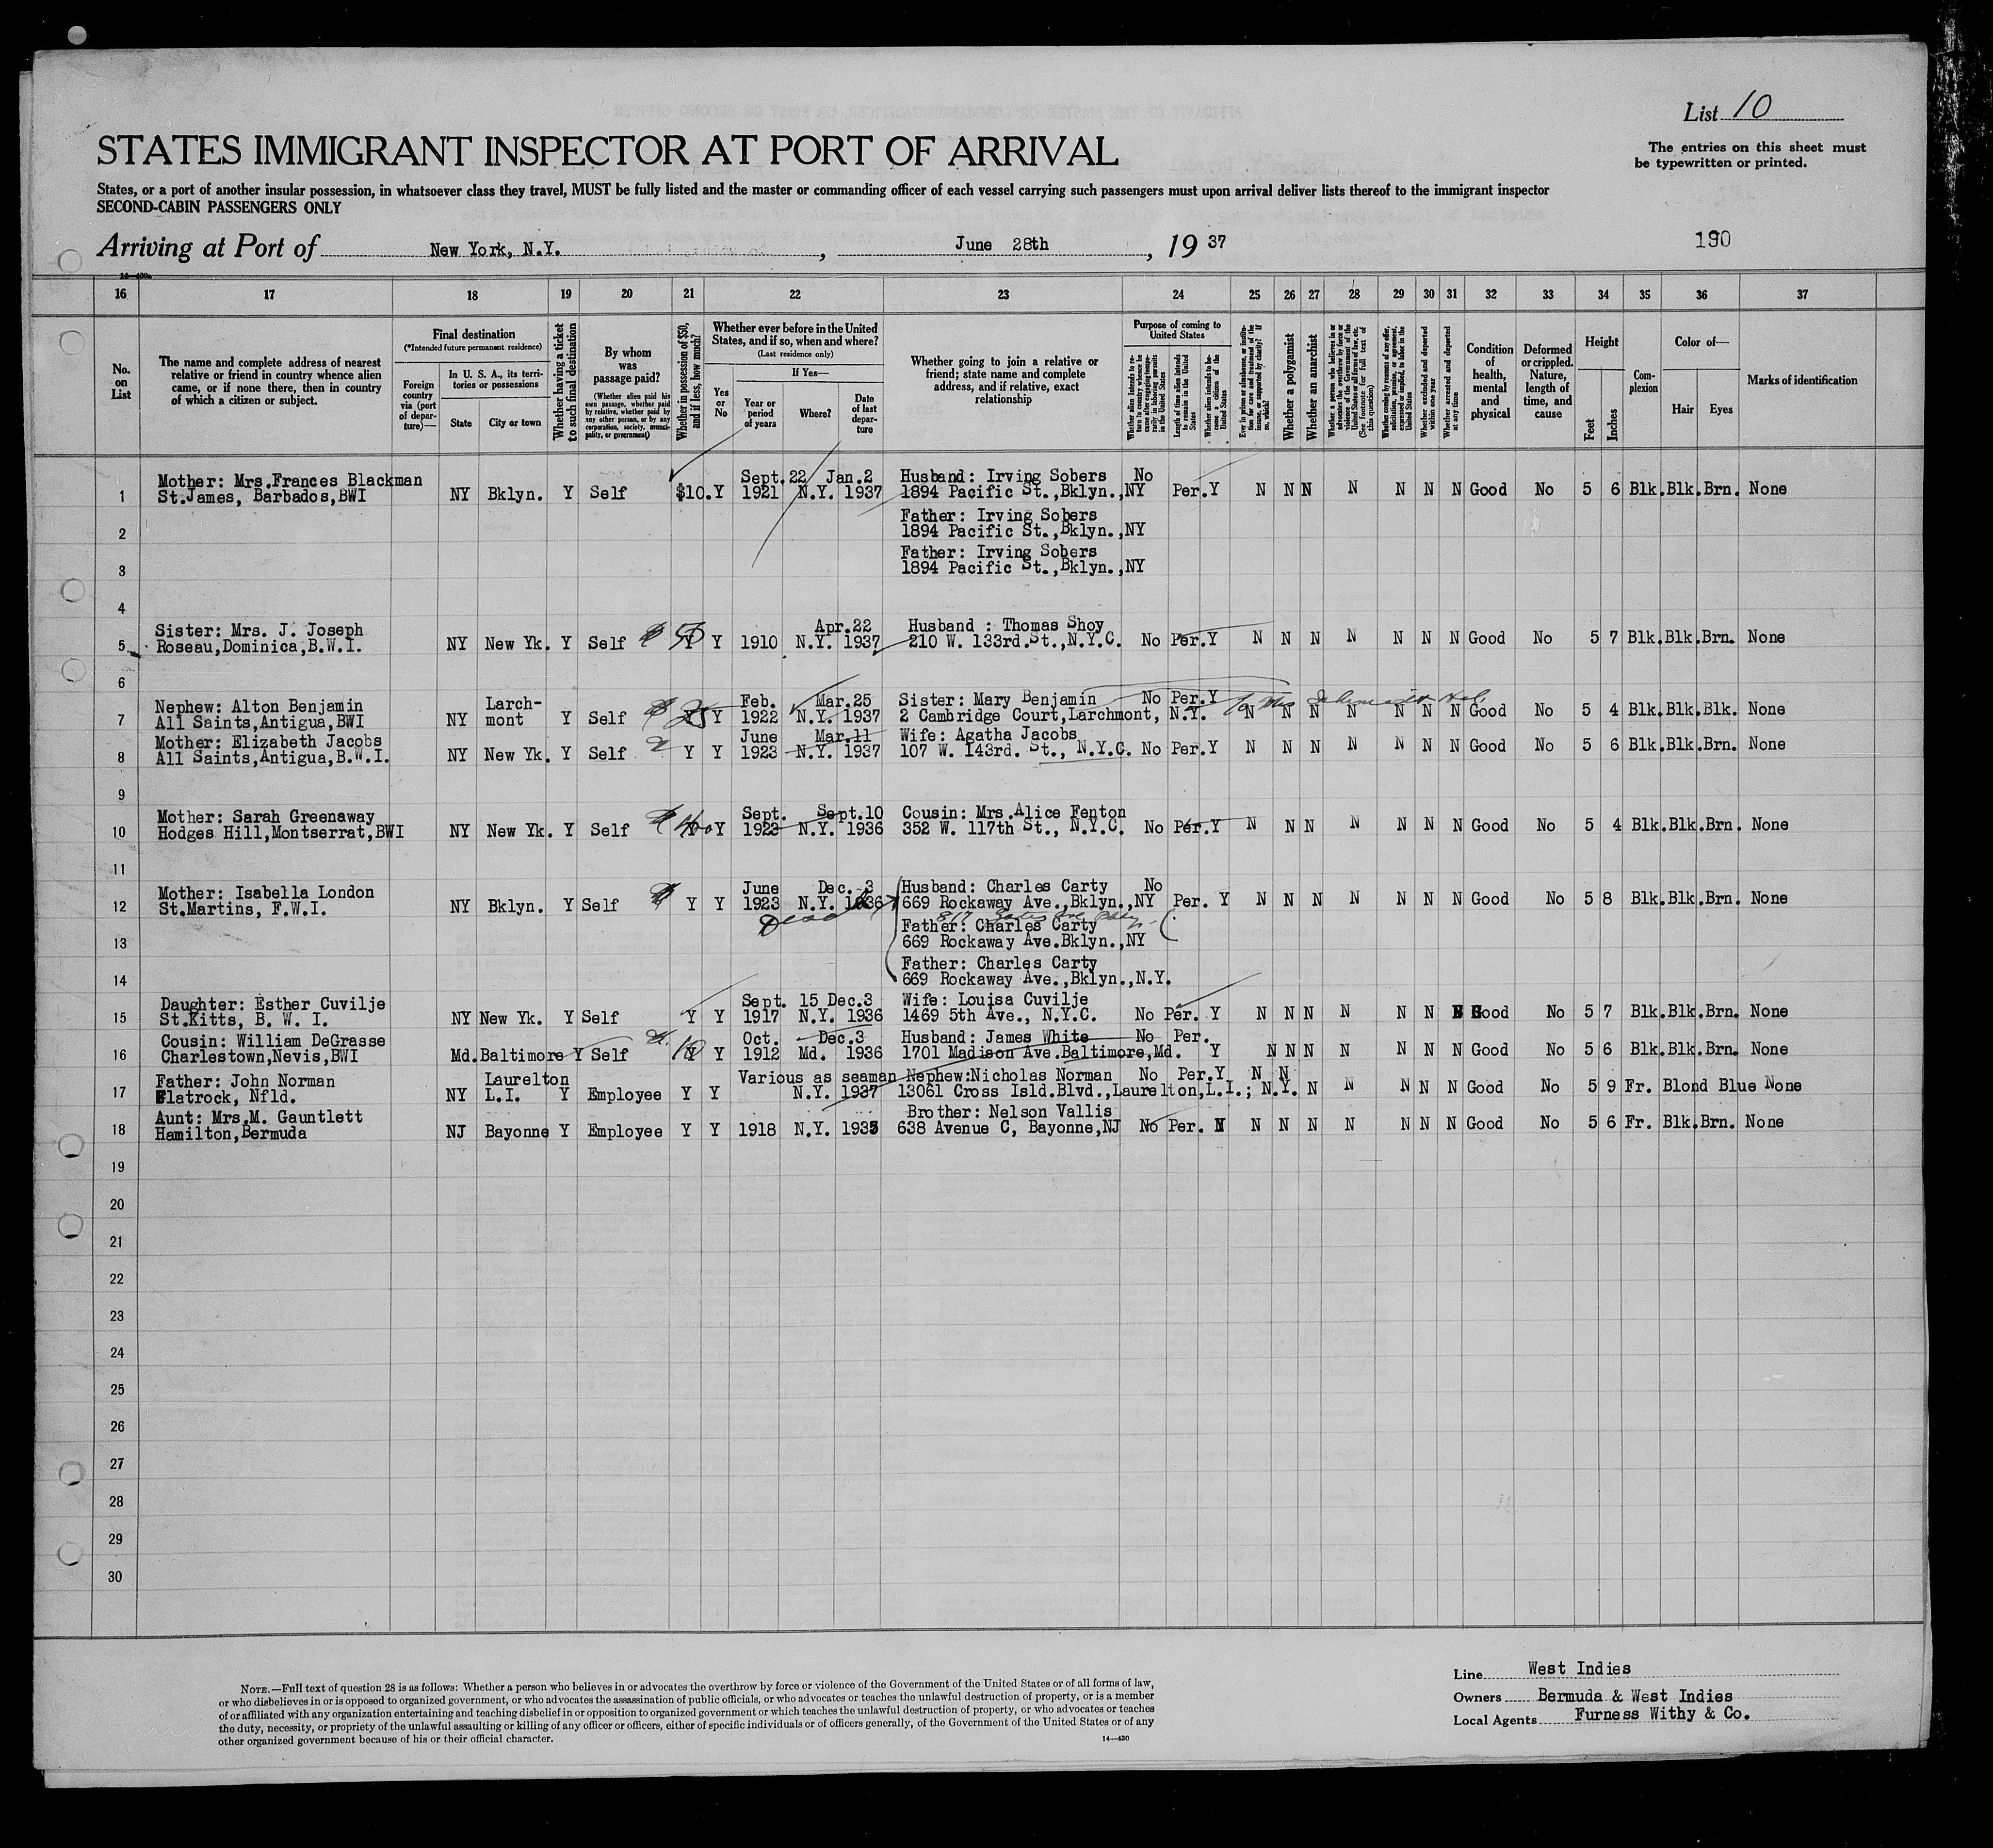 List 10
The entries on this sheet must
be typewritten or printed.
STATES IMMIGRANT INSPECTOR AT PORT OF ARRIVAL
States, or a port of another insular possession, in whatsoever class they travel, MUST be fully listed and the master or commanding officer of each vessel carrying such passengers must upon arrival deliver lists thereof to the immigrant inspector
SECOND-CABIN PASSENGERS ONLY
Arriving at Port of New York, N.Y. , June 28th , 19 37
190
16 17 18 19 20 21 22 23 24 25 26 27 28 29 30 31 32 33 34 35 36 37
No. on List
The name and complete address of nearest relative or friend in country whence alien came, or if none there, then in country of which a citizen or subject.
Final destination
(*Intended future permanent residence)
Foreign country via (port of departure)—
In U. S. A., its territories or possessions
State City or town
Whether having a ticket to such final destination
By whom was passage paid?
(Whether alien paid his own passage, whether paid by relative, whether paid by any other person, or by any corporation, society, municipality, or government)
Whether in possession of $50, and if less, how much?
Whether ever before in the United States, and if so, when and where?
(Last residence only)
Yes or No
If Yes—
Year or period of years
Where?
Date of last departure
Whether going to join a relative or friend; state name and complete address, and if relative, exact relationship
Purpose of coming to United States
Length of time alien intends to remain in the United States
Whether alien intends to become a citizen of the United States
Whether a polygamist
Whether an anarchist
Whether excluded and deported within one year
Whether arrested and deported at any time
Condition of health, mental and physical
Deformed or crippled. Nature, length of time, and cause
Height
Feet Inches
Complexion
Color of—
Hair Eyes
Marks of identification
Mother: Mrs.Frances Blackman Sept.22 Jan.2 Husband: Irving Sobers No
1 St.James, Barbados,BWI NY Bklyn. Y Self $10. Y 1921 N.Y. 1937 1894 Pacific St.,Bklyn.,NY Per. Y N N N N N N N Good No 5 6 Blk. Blk. Brn. None
Father: Irving Sobers
2 1894 Pacific St.,Bklyn.,NY
Father: Irving Sobers
3 1894 Pacific St.,Bklyn.,NY
4
Sister: Mrs. J. Joseph Apr.22 Husband : Thomas Shoy
5 Roseau,Dominica,B.W.I. NY New Yk. Y Self 50 Y Y 1910 N.Y. 1937 210 W. 133rd.St.,N.Y.C. No Per. Y N N N N N N N Good No 5 7 Blk. Blk. Brn. None
6
Nephew: Alton Benjamin Larch- Feb. Mar.25 Sister: Mary Benjamin No Per. Y
7 All Saints,Antigua,BWI NY mont Y Self 25 Y Y 1922 N.Y. 1937 2 Cambridge Court,Larchmont, N.Y. N N N N N N N Good No 5 4 Blk. Blk. Blk. None
Mother: Elizabeth Jacobs June Mar.11 Wife: Agatha Jacobs
8 All Saints,Antigua,B.W.I. NY New Yk. Y Self Y Y 1923 N.Y. 1937 107 W. 143rd. St., N.Y.C. No Per. Y N N N N N N N Good No 5 6 Blk. Blk. Brn. None
9
Mother: Sarah Greenaway Sept. Sept.10 Cousin: Mrs.Alice Fenton
10 Hodges Hill,Montserrat,BWI NY New Yk. Y Self Y 1923 N.Y. 1936 352 W. 117th St., N.Y.C. No Per. Y N N N N N N N Good No 5 4 Blk. Blk. Brn. None
11
Mother: Isabella London June Dec. 3 Husband: Charles Carty No
12 St.Martins, F.W.I. NY Bklyn. Y Self Y Y 1923 N.Y. 1936 669 Rockaway Ave.,Bklyn.,NY Per. Y N N N N N N N Good No 5 8 Blk. Blk. Brn. None
Father: Charles Carty
13 669 Rockaway Ave.Bklyn.,NY
Father: Charles Carty
14 669 Rockaway Ave.,Bklyn.,N.Y.
Daughter: Esther Cuvilje Sept. 15 Dec.3 Wife: Louisa Cuvilje
15 St.Kitts, B. W. I. NY New Yk. Y Self Y Y 1917 N.Y. 1936 1469 5th Ave., N.Y.C. No Per. Y N N N N N N N Good No 5 7 Blk. Blk. Brn. None
Cousin: William DeGrasse Oct. Dec.3 Husband: James White No Per.
16 Charlestown,Nevis,BWI Md. Baltimore Y Self 10 Y Y 1912 Md. 1936 1701 Madison Ave.Baltimore,Md. Y N N N N N N N Good No 5 6 Blk. Blk. Brn. None
Father: John Norman Laurelton Various as seaman Nephew:Nicholas Norman No Per. Y N N
17 Flatrock, Nfld. NY L.I. Y Employee Y Y N.Y. 1937 13061 Cross Isld.Blvd.,Laurelton,L.I.; N.Y. N N N N N Good No 5 9 Fr. Blond Blue None
Aunt: Mrs.M. Gauntlett Brother: Nelson Vallis
18 Hamilton,Bermuda NJ Bayonne Y Employee Y Y 1918 N.Y. 1935 638 Avenue C, Bayonne,NJ No Per. N N N N N N N N Good No 5 6 Fr. Blk. Brn. None
19
20
21
22
23
24
25
26
27
28
29
30
NOTE.—Full text of question 28 is as follows: Whether a person who believes in or advocates the overthrow by force or violence of the Government of the United States or of all forms of law,
or who disbelieves in or is opposed to organized government, or who advocates the assassination of public officials, or who advocates or teaches the unlawful destruction of property, or is a member
of or affiliated with any organization entertaining and teaching disbelief in or opposition to organized government or which teaches the unlawful destruction of property, or who advocates or teaches
the duty, necessity, or propriety of the unlawful assaulting or killing of any officer or officers, either of specific individuals or of officers generally, of the Government of the United States or of any
other organized government because of his or their official character.
14—430
Line West Indies
Owners Bermuda & West Indies
Local Agents Furness Withy & Co.